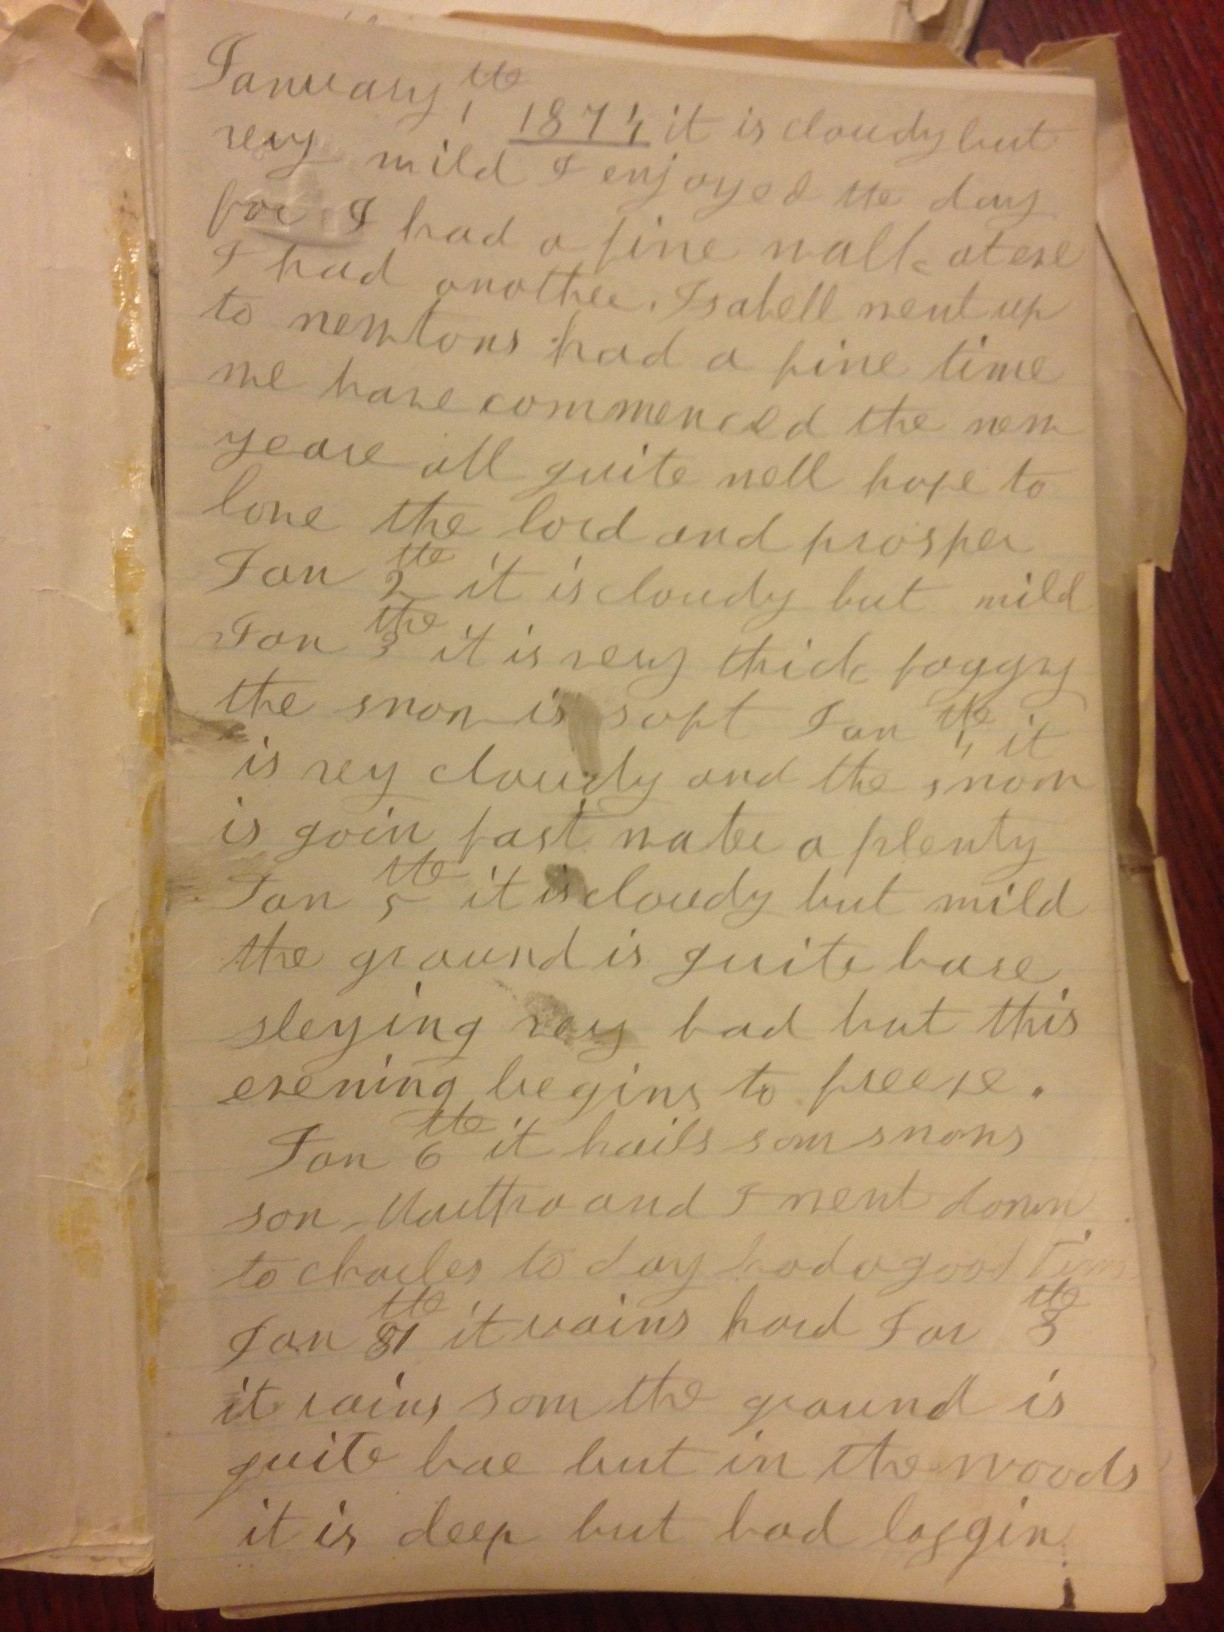 January 1 the 1874 it is cloudy but
very mild I enjoyed the day
for I had a fine walk atere
I had another. Isabell went up
to newtons had a fine time
we have commenced the new
yeare all quite well hope to
love the lord and prosper
Jan 2 the it is cloudy but mild
Jan 3 the it is very thick foggy
the snow is soft Jan 4 the it
is vey cloudy and the snow
is goin fast water a plenty
Jan 5 the it is cloudy but mild
the ground is quite bare
sleying very bad but this
evening begins to freeze.
Jan 6 the it hails som snows
som Martha and I went down
to charles to day had a good time
Jan the it rains hard Jan 8 the
it rains som the ground is
quite bae but in the woods
it is deep but bad loggin